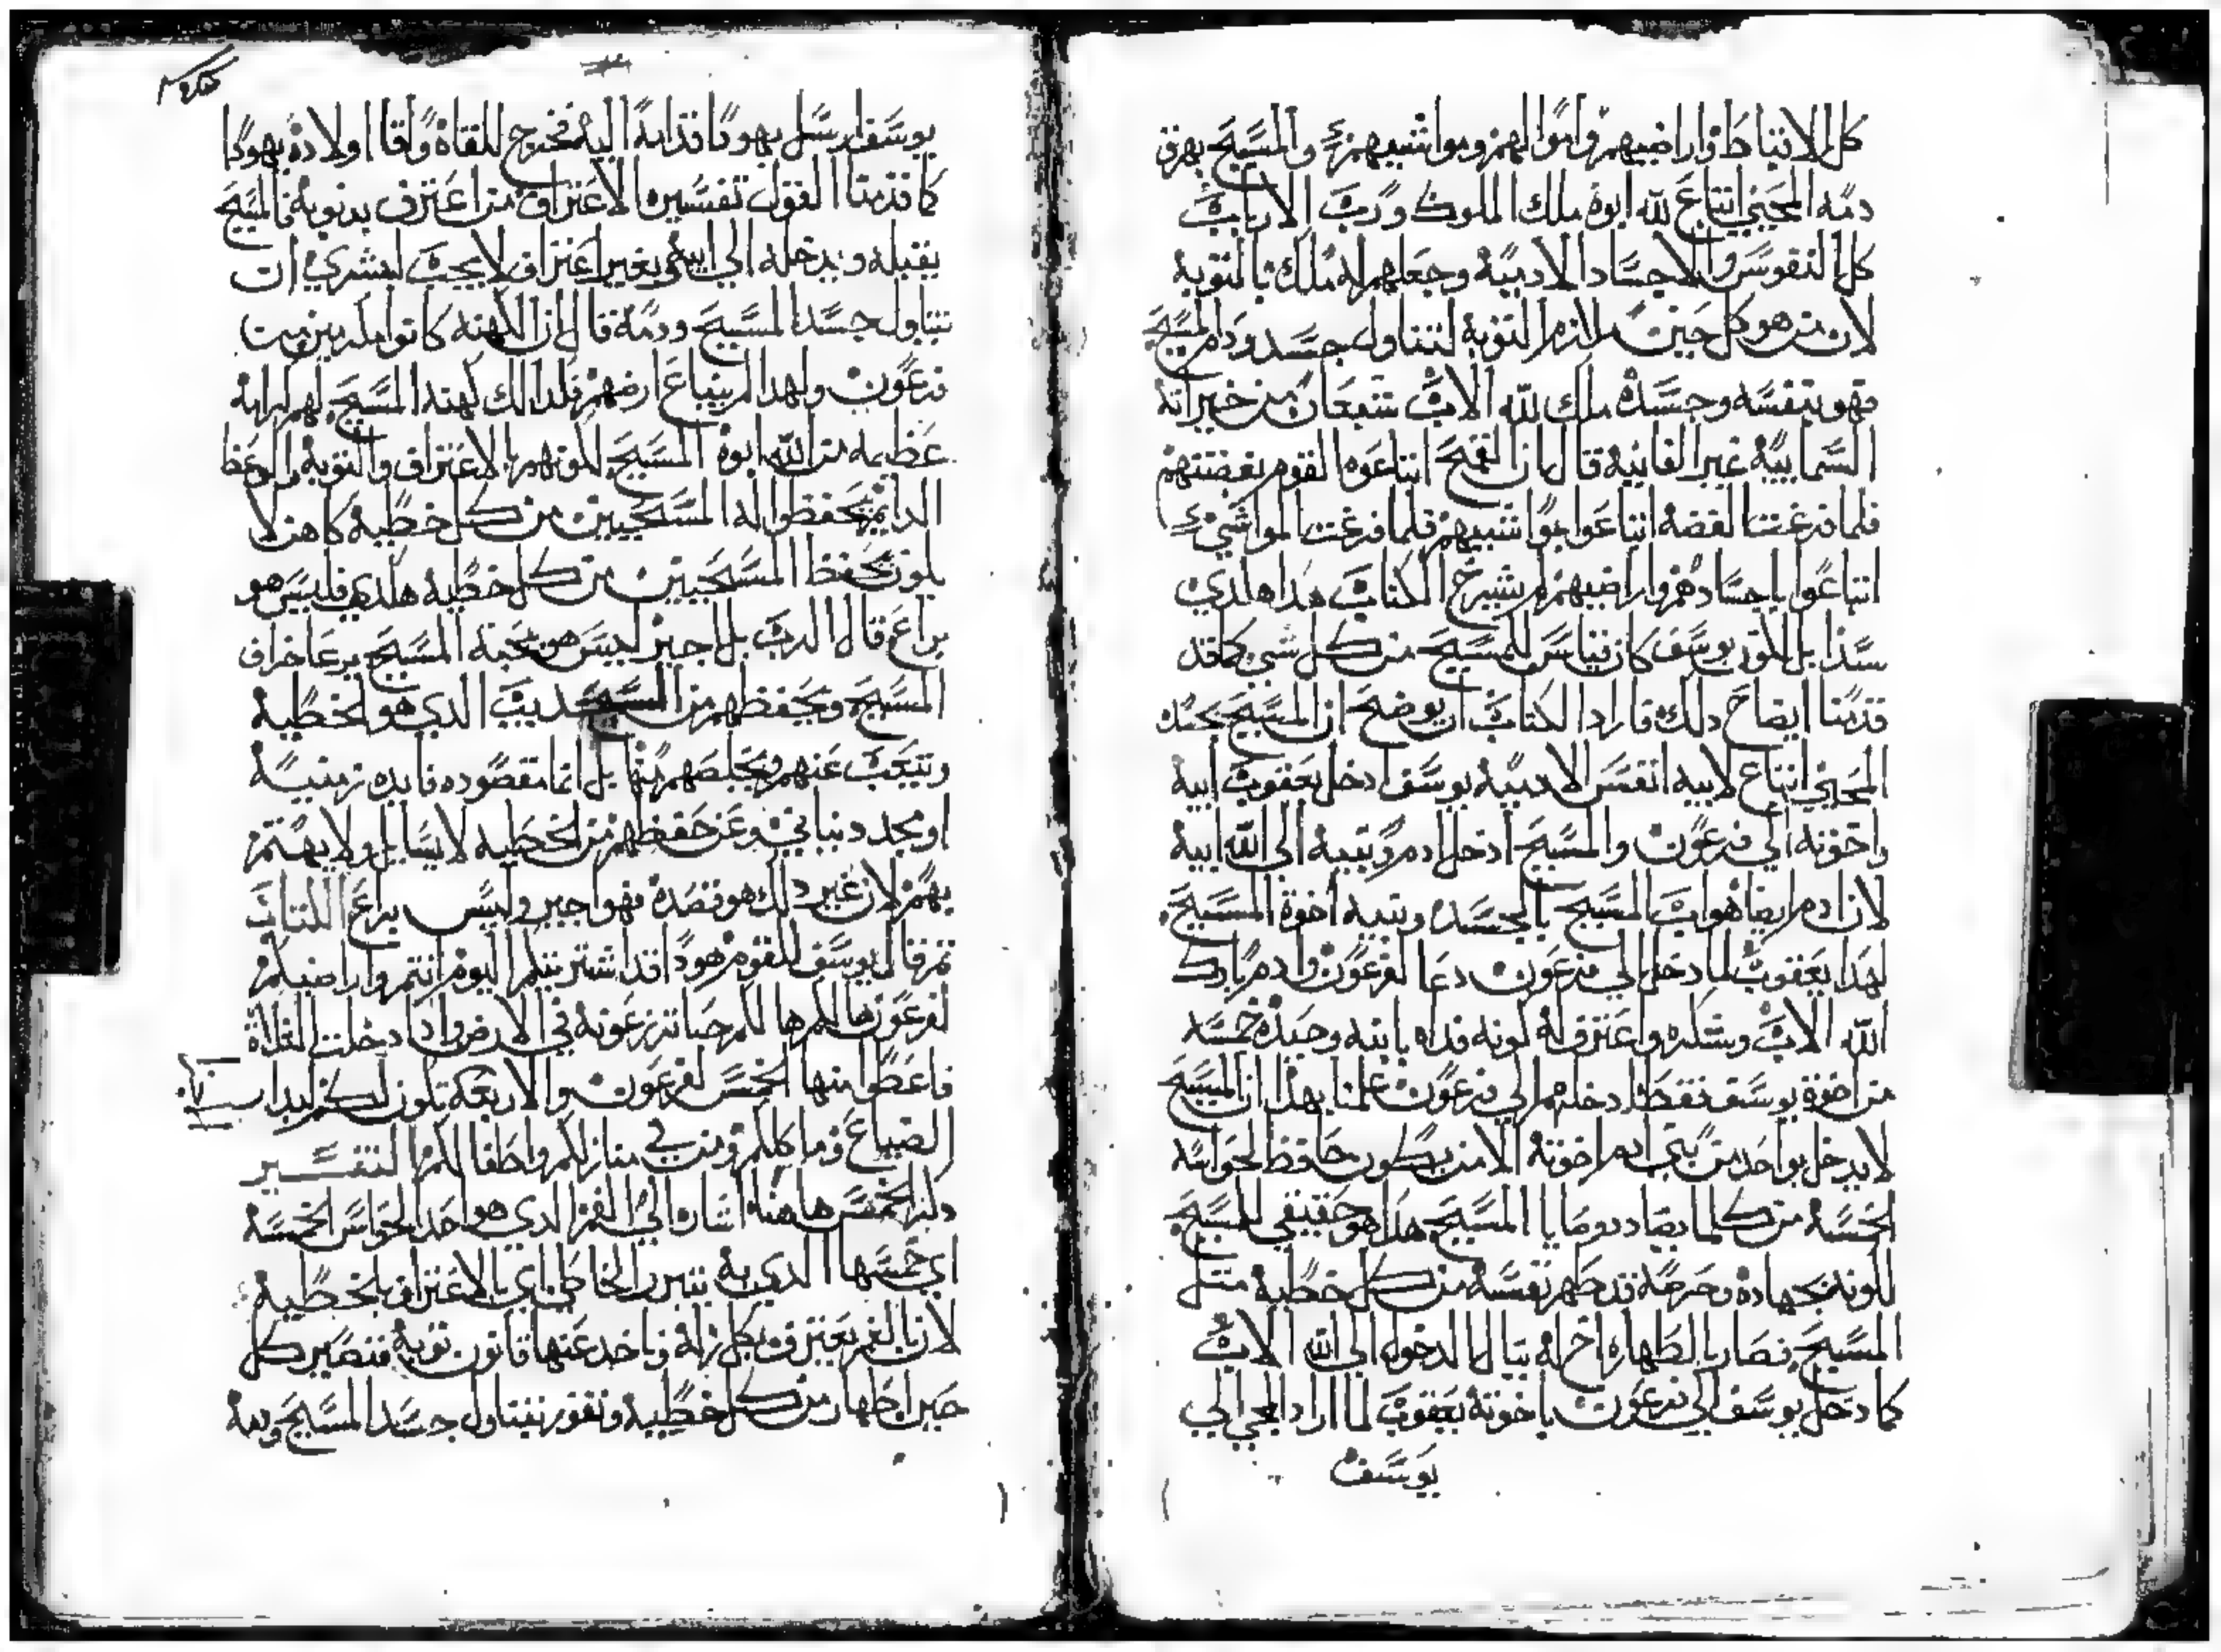 كل الانباط واراضيهم واموالهم ومواشيهم والمسيح بهرق
دمه المحيي ابتاع لله ابوه ملك الملوك ورب الارباب
كل النفوس والاجساد الادميه وجعلهم له ملك بالتوبه
لان من هو كل حين ملازم التوبه لتناول جسد ودم المسيح
فهو بنفسه وجسده ملك لله الاب شبعان من خيراته
السماييه غير الفانيه قال ان القمح ابتاعوه القوم بفضتهم
فلما فرغت الفضه ابتاعوا بمواشيهم فلما فرغت المواشي
ابتاعوا باجسادهم واراضيهم لم يشرح الكتاب هذا هلدي
سدا بل لكون يوسف كان بقياس للمسيح من كل شي كما قد
قدمنا ايضاح دلك فاراد الكتاب ان يوضح ان المسيح بجسده
المحيي ابتاع لابيه انفس الادميه يوسف ادخل يعقوب ابيه
واخوته الي فرعون والمسيح ادخل ادم وبنيه الى الله ابيه
لان ادم ايضا هو اب المسيح بالجسد وبنيه اخوة المسيح
لهدا يعقوب لما دخل الي فرعون دعا لفرعون وادم بارك
الله الاب وشكره واعترف له كونه فداه بابنه وحيده خمسه
من اخوة يوسف فقط ادخلهم الي فرعون علمنا بهدا ان المسيح
لا يدخل بواحد من بني ادم اخوته الا من يكون حافظ لحواسه
الخمسه من كلما يضاد وصايا المسيح هدا هو حقيقي للمسيح
لكونه بجهاده وحرصه قد طهر نفسه من كل خطيه متل
المسيح فصار بالطهاره اخ له ينال الدخول الى الله الاب
كما دخل يوسف الي فرعون باخوته يعقوب لما اراد المجي الي
يوسف
يوسف ارسل يهودا قدامه اليه فخرج للقاه ولقا اولاده يهودا
كما قدمنا القول تفسيره الاعتراف من اعترف بدنوبه فالمسيح
يقبله ويدخله الي ابيه وبغير اعتراف لا يجب لبشري ان
يتناول جسد المسيح ودمه قال ان الكهنه كانوا مكرمين من
فرعون ولهدا لم يبتاع ارضهم فلدالك كهنة المسيح لهم كرامه
عظيمه من الله ابوه المسيح لكونهم بالاعتراف والتوبه والوعظ
الدايم يحفظوا له المسيحيين من كل خطيه كاهن لا
يكون يحفظ المسيحيين من كل خطيه هلدي فليس هو
براع قال الرب بل اجير ليس هو بمحبة المسيح يرعا خراف
المسيح ويحفظهم من الديب الدي هو الخطيه
ويتعب عنهم ويخلصهم منها بل انما مقصوده فايده زمنيه
او مجد دنياني وعن حفظهم من الخطيه لا يسايل ولا يهتم
بهم لان غير دلك هو قصده فهو اجير وليس براع الكتاب
تم قال يوسف للقوم هودا قد اشتريتكم اليوم انتم واراضيكم
لفرعون هالكم ها لكم حبا تزرعونه في الارض وادا دخلت الغلاة
فاعطوا منها الخمس لفرعون والاربعة تكون لكم لبدار
الضياع وماكلكم ومن في منازلكم واطفالكم التفسير
دكر الخمس هاهنا اشاره الي الفم الدي هو احد الحواس الخمسه
اي خمسها الدي به يتبرر الخاطي اي بالاعتراف بالخطيه
لان بالفم يعترف بكل زله وياخد عنها قانون توبه فتصير كل
حين اطهار من كل خطيه ونفوز بتناول جسد المسيح وبه